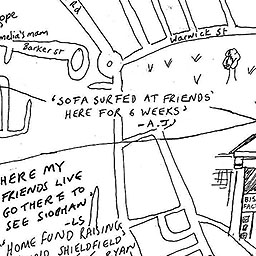 Rd
ope
melia's mam
Barker St
Warwick St
'SOFA SURFED AT FRIENDS'
HERE FOR 6 WEEKS'
- A.J
HERE MY
FRIENDS LIVE
GO THERE TO
SEE SIOBHAN'
-LS
'HOME FUND RAISING
ND SHIELDFIELD'
RYAN
BIS
FAC